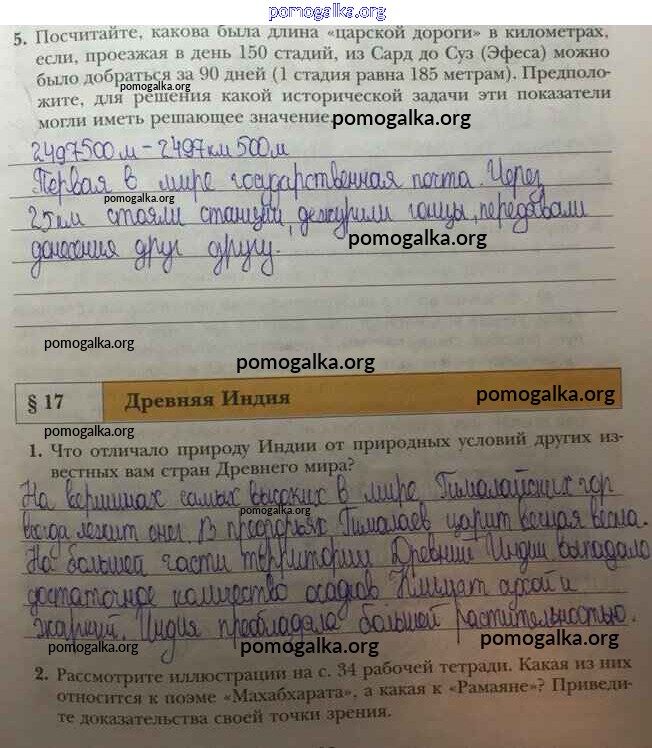 pomogalka.org
5. Посчитайте, какова была длина «царской дороги» в километрах,
если, проезжая в день 150 стадий, из Сард до Суз (Эфеса) можно
было добраться за 90 дней (1 стадия равна 185 метрам). Предполо-
pomogalka.org
жите, для решения какой исторической задачи эти показатели
могли иметь решающее значение.
pomogalka.org
2497500 м – 2497 км 500 м
Первая в мире государственная почта. Через
pomogalka.org
25 км стояли станции, дежурили гонцы, передавали
pomogalka.org
донесения друг другу.
pomogalka.org
pomogalka.org
§ 17 Древняя Индия
pomogalka.org
pomogalka.org
1. Что отличало природу Индии от природных условий других из-
вестных вам стран Древнего мира?
На вершинах самых высоких в мире Гималайских гор
pomogalka.org
всегда лежит снег. В предгорьях Гималаев царит вечная весна.
На большей части территории Древние Индии выпадало
достаточное количество осадков Климат сухой и
жаркий. Индия преобладала большей растительностью.
pomogalka.org pomogalka.org pomogalka.org
2. Рассмотрите иллюстрации на с. 34 рабочей тетради. Какая из них
относится к поэме «Махабхарата», а какая к «Рамаяне»? Приведи-
те доказательства своей точки зрения.